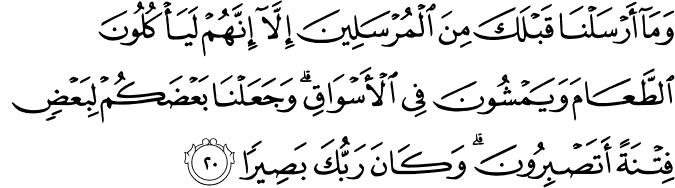 وَمَآ أَرْسَلْنَا قَبْلَكَ مِنَ ٱلْمُرْسَلِينَ إِلَّآ إِنَّهُمْ لَيَأْكُلُونَ
ٱلطَّعَامَ وَيَمْشُونَ فِى ٱلْأَسْوَاقِ ۗ وَجَعَلْنَا بَعْضَكُمْ لِبَعْضٍ
فِتْنَةً أَتَصْبِرُونَ ۗ وَكَانَ رَبُّكَ بَصِيرًا ٢٠